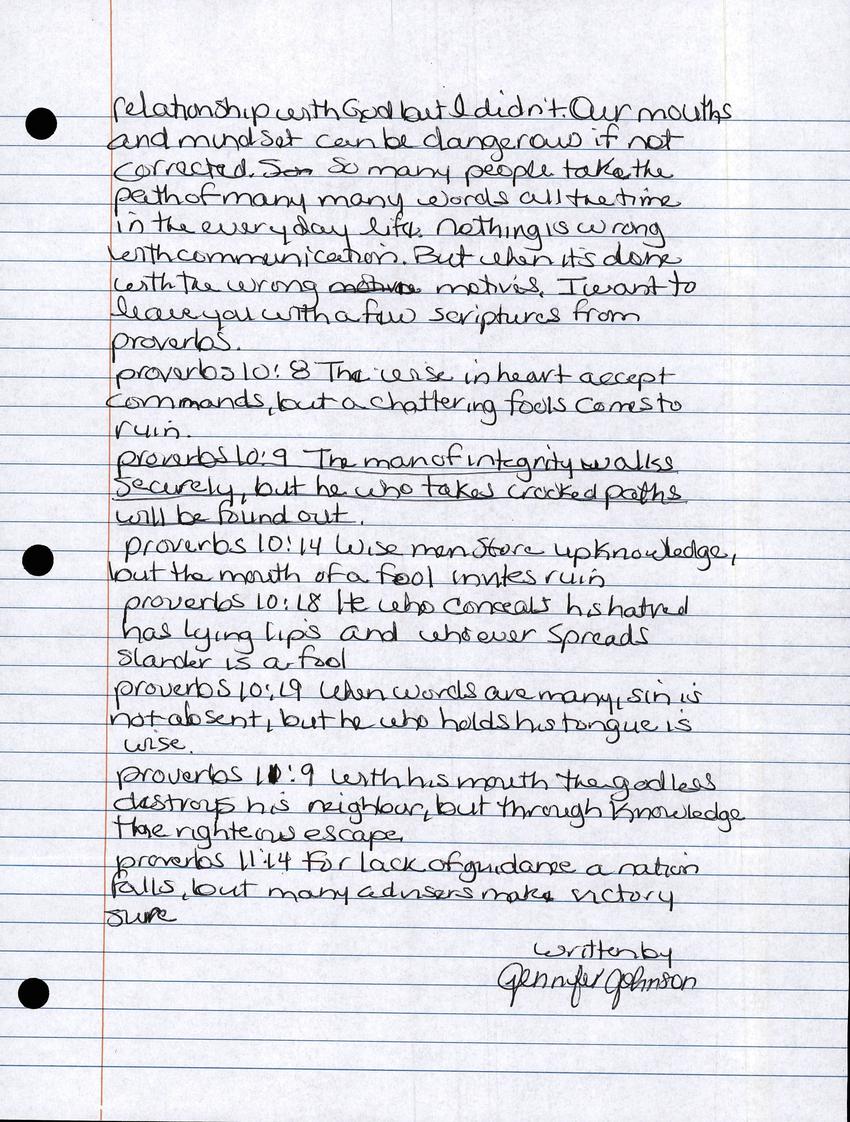 relationship with God but I didn't. Our mouths
and mindset can be dangerous if not
corrected. So many people take the
path of many many words all the time
in the everyday life. nothing is wrong
with communication. But when it's done
with the wrong motives. I want to
leave you with a few scriptures from
proverbs.
proverbs 10:8 The wise in heart accept
commands, but a chattering fools comes to
ruin.
proverbs 10:9 The man of integrity walks
securely, but he who takes crooked paths
will be found out.
proverbs 10:14 Wise men store up knowledge,
but the mouth of a fool invites ruin
proverbs 10:18 He who conceals his hatred
has lying lips and whoever spreads
slander is a fool
proverbs 10:19 when words are many, sin is
not absent, but he who holds his tongue is
wise.
proverbs 11:9 with his mouth the godless
destroys his neighbour, but through knowledge
the righteous escape.
proverbs 11:14 For lack of guidance a nation
falls, but many advisers make victory
sure
written by
Jennifer Johnson